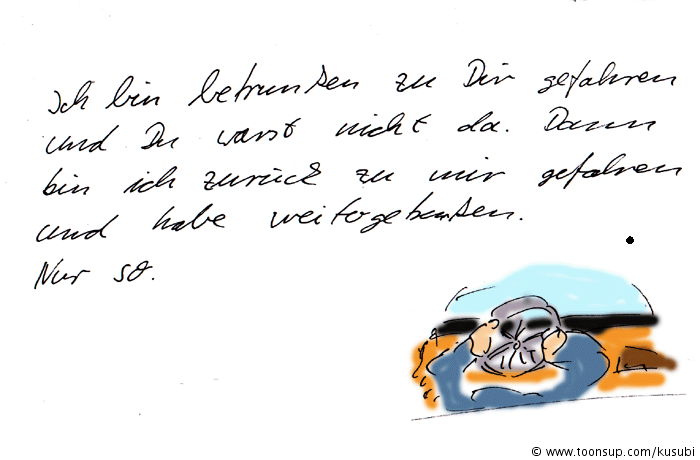 Ich bin betrunken zu Dir gefahren
und Du warst nicht da. Dann
bin ich zurück zu mir gefahren
und habe weitergetrunken.
Nur so.
© www.toonsup.com/kusubi